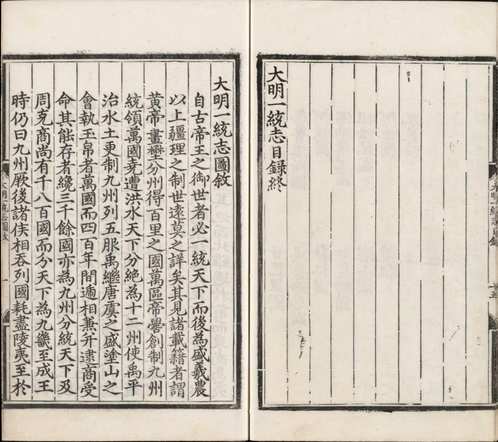 大明一統志目録終
大明一統志圖敘
自古帝王之御世者必一統天下而後為盛羲農
以上疆理之制世遠莫之詳矣其見諸載籍者謂
黃帝畫壄分州得百里之國萬區帝嚳創制九州
統領萬國堯遭洪水天下分絶為十二州使禹平
治水土更制九州列五服禹繼唐虞之盛塗山之
會執玉帛者萬國而四百年間遞相兼并逮商受
命其能存者纔三千餘國亦為九州分統天下及
周克商尚有千八百國而分天下為九畿至成王
時仍曰九州厥後諸侯相吞列國耗盡陵夷至於